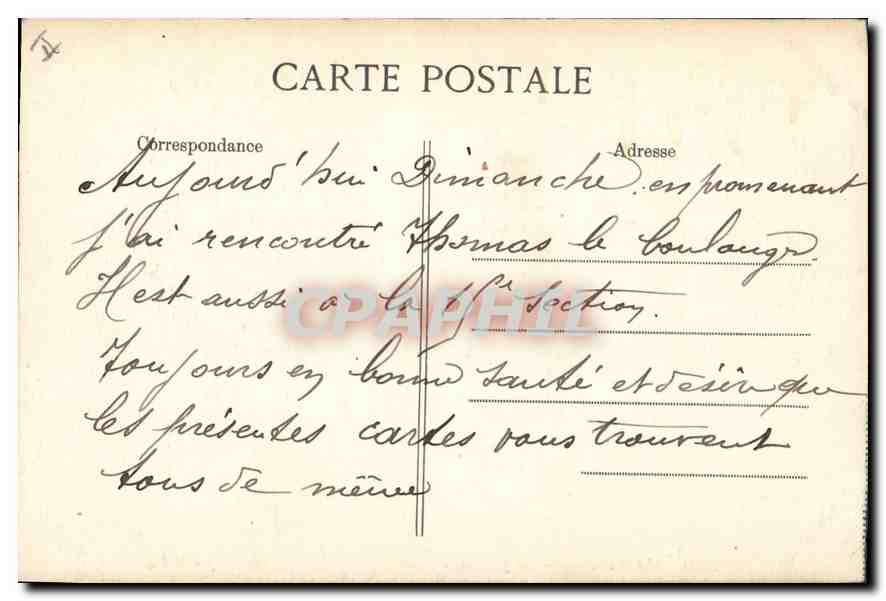 CARTE POSTALE
Correspondance
Adresse
Aujourd'hui Dimanche en promenant
j'ai rencontré Thomas le boulanger.
Il est aussi à la section.
Toujours en bonne santé et désire que
les présentes cartes vous trouvent
tous de même
CPAPHIL